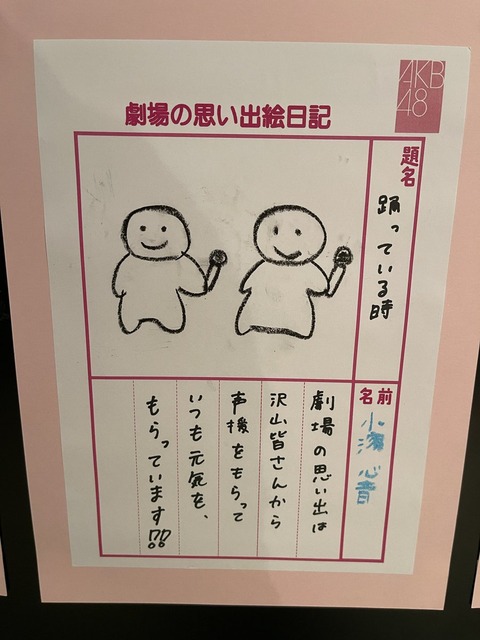 AKB
48
劇場の思い出絵日記
題名
踊っている時
名前
小濵心音
劇場の思い出は
沢山皆さんから
声援をもらって
いつも元気を、
もらっています!!